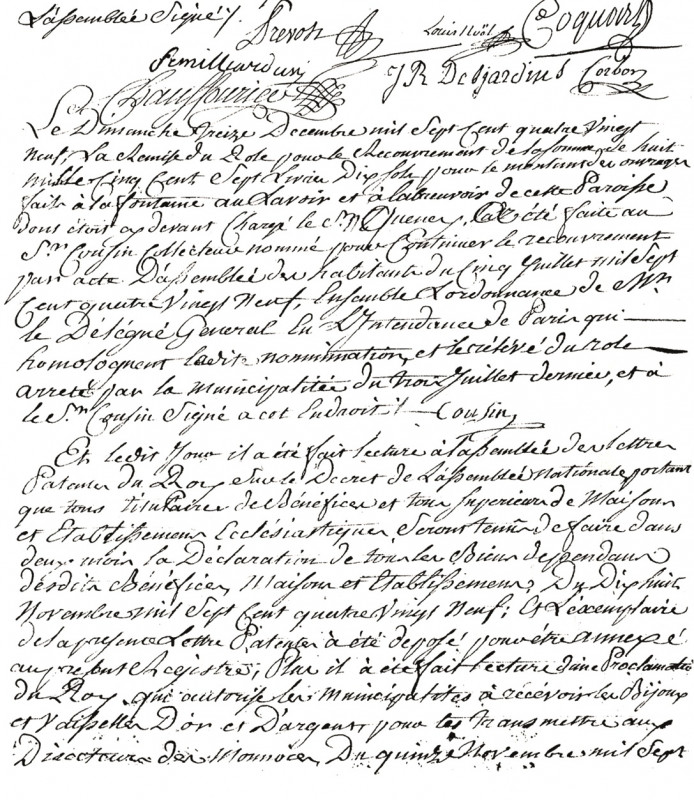 L'assemblée Signé /.
Prevost Louis Noël Coquart
Femilliard
J R Desjardins Corbon
Chauffourier
Le Dimanche treize Decembre mil Sept Cent quatre Vingt
Neuf, La Remise du Role pour le Recouvrement de la somme de huit
mille Cinq Cent Sept Livres Dix sols pour le montant des ouvrages
faits à la fontaine au Lavoir et à l'abreuvoir de cette Paroisse
dont étoit cy devant Chargé le S.r Quenes, a été faite au
S.r Cousin Collecteur nommé pour Continuer le recouvrement
par acte D'assemblée des habitants du Cinq Juillet mil Sept
Cent quatre Vingt Neuf, Ensemble L'ordonnance de M.r
le Délégué General En L'Intendance de Paris qui
homologuent ladite nommination, et le relévé du role
arreté par la municipalitée du trois Juillet dernier, et à
le S.r Cousin Signé a cet Endroit ! Cousin
Et ledit Jour il a été fait lecture à l'assemblée des lettres
Patentes du Roy Sur le Decret de L'assemblée Nationale portant
que tous titulaires de Bénéfices et tous Superieurs de Maisons
et Etablissemens Ecclésiastiques Seront tenus de faire dans
deux mois la Déclaration de tous les Biens dependans
desdits Bénéfices, Maisons et Etablissemens, Du Dix huit
Novembre mil Sept Cent quatre Vingt Neuf ; Et L'exemplaire
de la presente Lettre Patentes à été deposé pour être annexé
au present Registre, Plus il à été fait lecture d'une Proclamation
du Roy qui autorise les municipalites à recevoir les Bijoux
et Vaisselles D'or et D'argent pour les transmettre aux
Directeurs des Monnoies, Du quinze Novembre mil Sept